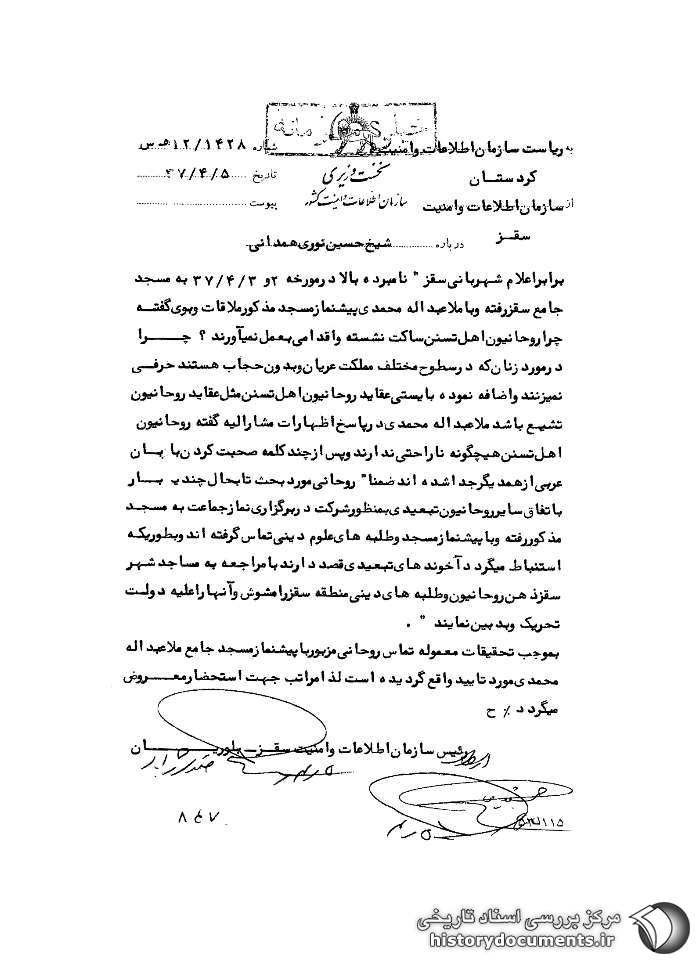 خیلی محرمانه
به ریاست سازمان اطلاعات وامنیت شماره ۱۲/۱۴۲۸ ه‍ س
نخست وزیری
کردستان تاریخ ۳۷/۴/۵
سازمان اطلاعات و امنیت کشور
از سازمان اطلاعات وامنیت پیوست
سقز
درباره شیخ حسین نوری همدانی
برابر اعلام شهربانی سقز " نامبرده بالا در مورخه ۲ و ۳۷/۴/۳ به مسجد
جامع سقز رفته وبا ملا عبد اله محمدی پیشنماز مسجد مذکور ملاقات وبوی گفته
چرا روحانیون اهل تسنن ساکت نشسته واقدامی بعمل نمیآورند ؟ چرا
در مورد زنان که در سطوح مختلف مملکت عریان وبدون حجاب هستند حرفی
نمیزنند واضافه نموده بایستی عقاید روحانیون اهل تسنن مثل عقاید روحانیون
تشیع باشد ملا عبد اله محمدی در پاسخ اظهارات مشارالیه گفته روحانیون
اهل تسنن هیچگونه ناراحتی ندارند وپس از چند کلمه صحبت کردن با زبان
عربی از همدیگر جدا شده اند ضمنا" روحانی مورد بحث تا بحال چندین بار
با تفاق سایر روحانیون تبعیدی بمنظور شرکت در برگزاری نماز جماعت به مسجد
مذکور رفته وبا پیشنماز مسجد وطلبه های علوم دینی تماس گرفته اند وبطوریکه
استنباط میگردد آخوند های تبعیدی قصد دارند با مراجعه به مساجد شهر
سقز ذهن روحانیون وطلبه های دینی منطقه سقز را مشوش وآنها را علیه دولت
تحریک وبد بین نمایند " .
بموجب تحقیقات معموله تماس روحانی مزبور با پیشنماز مسجد جامع ملا عبد اله
محمدی مورد تایید واقع گردیده است لذا مراتب جهت استحضار معروض
میگردد ٪ ح
رئیس سازمان اطلاعات وامنیت سقز ـ بلوریان
۸۴۷
مرکز بررسی اسناد تاریخی
historydocuments.ir